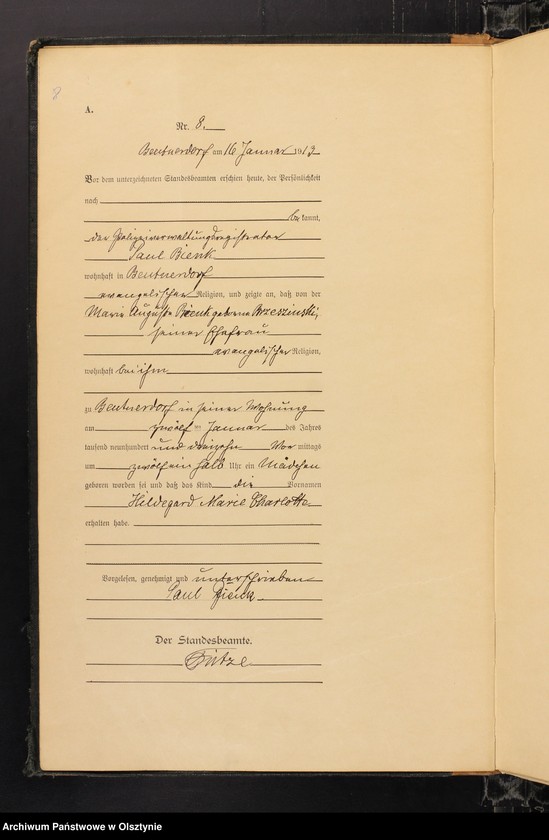 8
A.
Nr. 8.
Beutnerdorf am 16 Januar 1913
Vor dem unterzeichneten Standesbeamten erschien heute, der Persönlichkeit
nach
be kannt,
der Polizeiverwaltungsregistrator
Paul Bienk
wohnhaft in Beutnerdorf
evangelischer Religion, und zeigte an, daß von der
Marie Auguste Bienk geborene Brzeszinski,
seiner Ehefrau
evangelischer Religion,
wohnhaft bei ihm
zu Beutnerdorf in seiner Wohnung
am zwölf ten Januar des Jahres
tausend neunhundert und dreizehn Vor mittags
um zwölfeinhalb Uhr ein Mädchen
geboren worden sei und daß das Kind die Vornamen
Hildegard Marie Charlotte
erhalten habe.
Vorgelesen, genehmigt und unterschrieben
Paul Bienk
Der Standesbeamte.
Archiwum Państwowe w Olsztynie